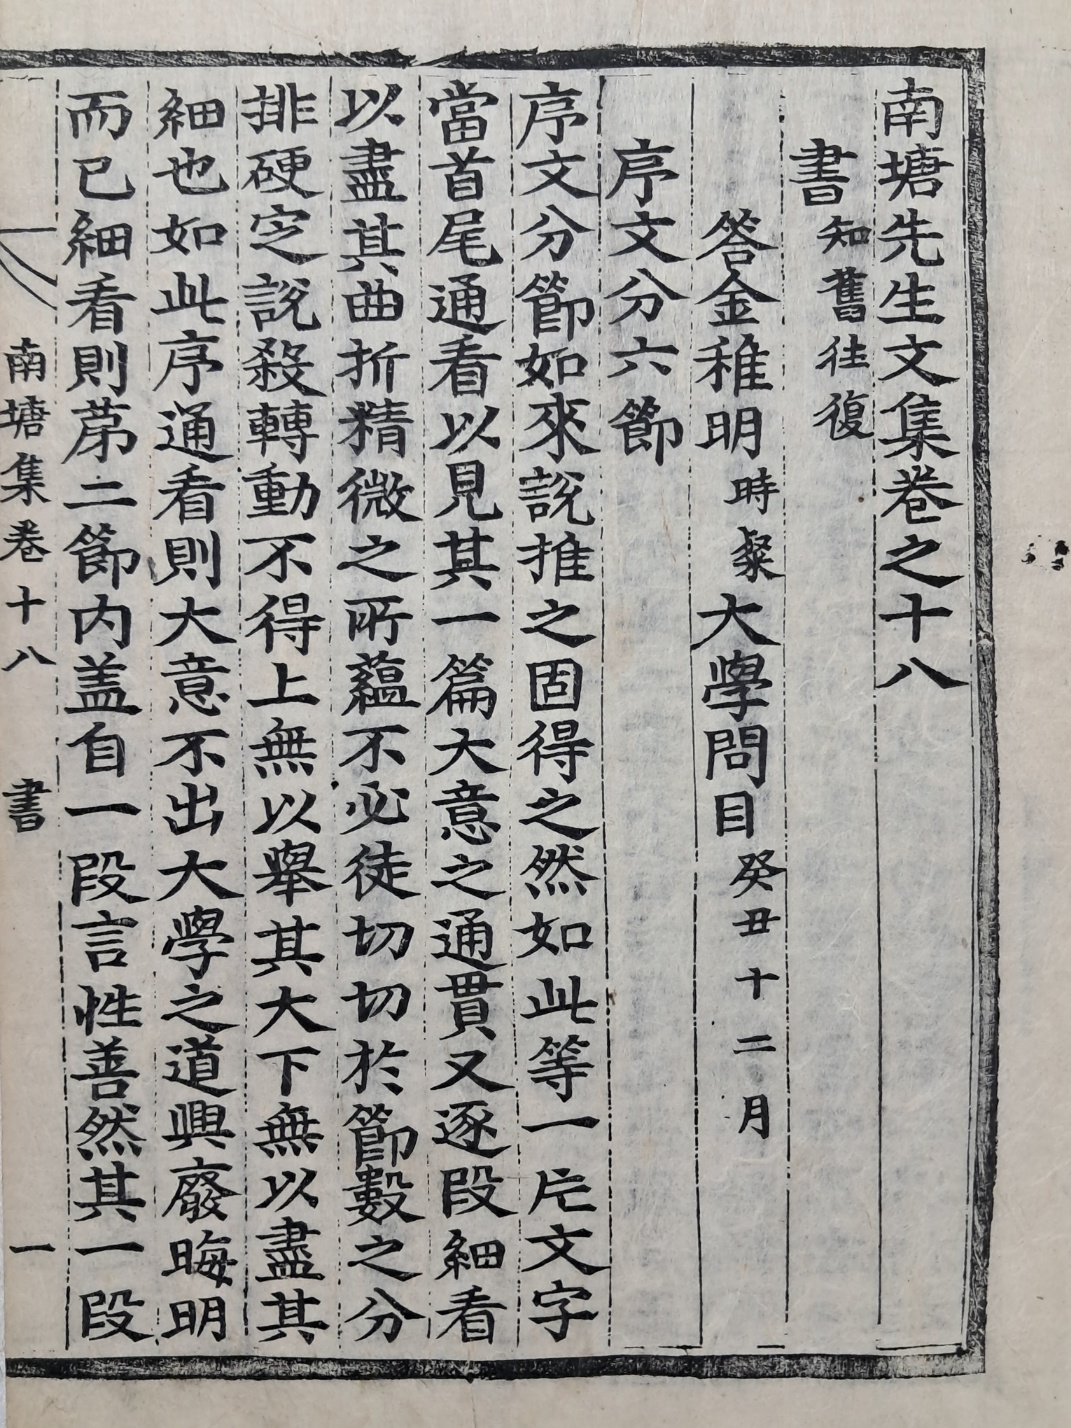 南塘先生文集卷之十八
書知舊往復
答金稚明時粲大學問目癸丑十二月
序文分六節
序文分節如來說推之固得之然如此等一片文字
當首尾通看以見其一篇大意之通貫又逐段細看
以盡其曲折精微之所蘊不必徒切切於節數之分
排硬定說殺轉動不得上無以舉其大下無以盡其
細也如此序通看則大意不出大學之道興廢晦明
而已細看則苐二節內盖自一段言性善然其一段
南塘集卷十八 書 一